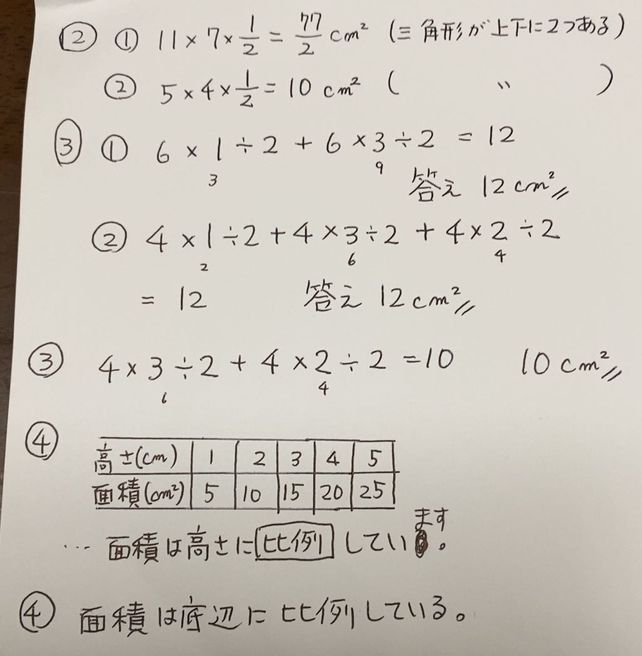 ② ① 11×7×1/2 = 77/2 cm² (三角形が上下に2つある)
② 5×4×1/2 = 10 cm² ( 〃 )
③ ① 6×1÷2+6×3÷2 = 12
3 9
答え 12cm²
② 4×1÷2+4×3÷2+4×2÷2
2 6 4
= 12 答え 12cm²
③ 4×3÷2+4×2÷2=10 10cm²
6 4
④
高さ(cm) 1 2 3 4 5
面積(cm²) 5 10 15 20 25
… 面積は高さに比例しています。
④ 面積は底辺に比例している。